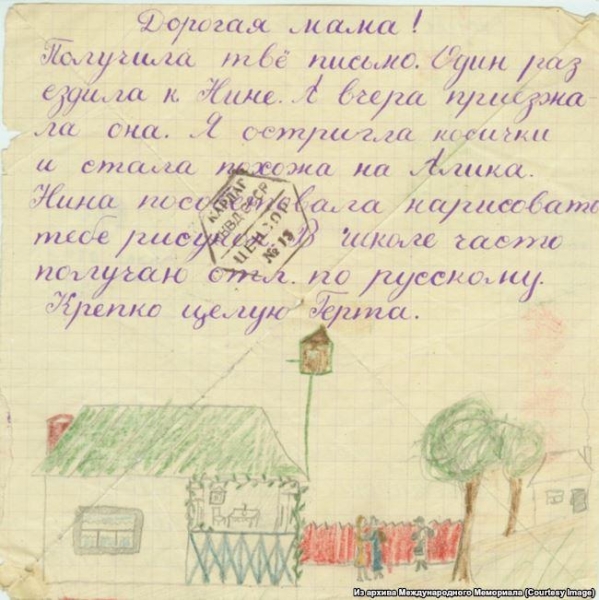 Дорогая мама!
Получила твё письмо. Один раз
ездила к Нине. А вчера приезжа-
ла она. Я остригла косички
и стала похожа на Алика.
Нина посоветовала нарисовать
тебе рисунок. В школе часто
получаю отл. по русскому.
Крепко целую Герта.
КАРЛАГ
НКВД СССР
ЦЕНЗОР
№ 13
Из архива Международного Мемориала (Courtesy Image)